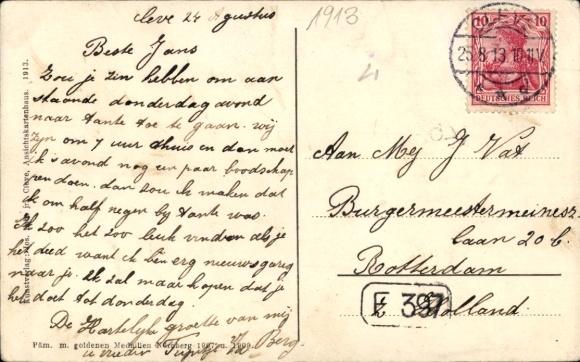 Cleve 24 Augustus
1913
Beste Jans
Zou je zin hebben om aan
staande donderdag avond
naar tante toe te gaan. wij
zyn om 7 uur thuis en dan moet
ik s'avond nog een paar boodschap
pen doen. dan zou ik maken dat
ik om half negen by tante was.
Ik zoo het zoo leuk vinden als je
het deed want ik ben erg nieuwsgierig
naar je. Ik zal maar hopen dat je
het doet tot donderdag.
De Hartelyke groette van mij
u vriedin v/d Berg
Ansichtskartenhaus. 1913.
Päm. m. goldenen Medaillen Nürnberg 1907 u. 1909.
25.8.13.10-11V
10 10
DEUTSCHES REICH
Aan Mej J Vat
Burgermeestermeinesz
laan 20 b.
Rotterdam
Holland
E 397